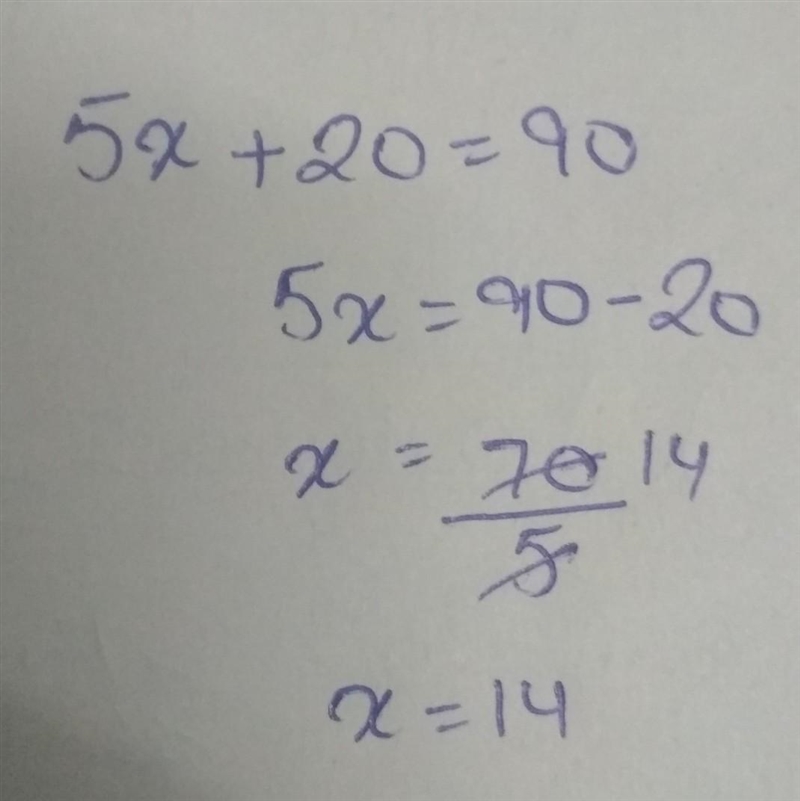 5x + 20 = 90
5x = 90 - 20
x = 70/5 14
x = 14